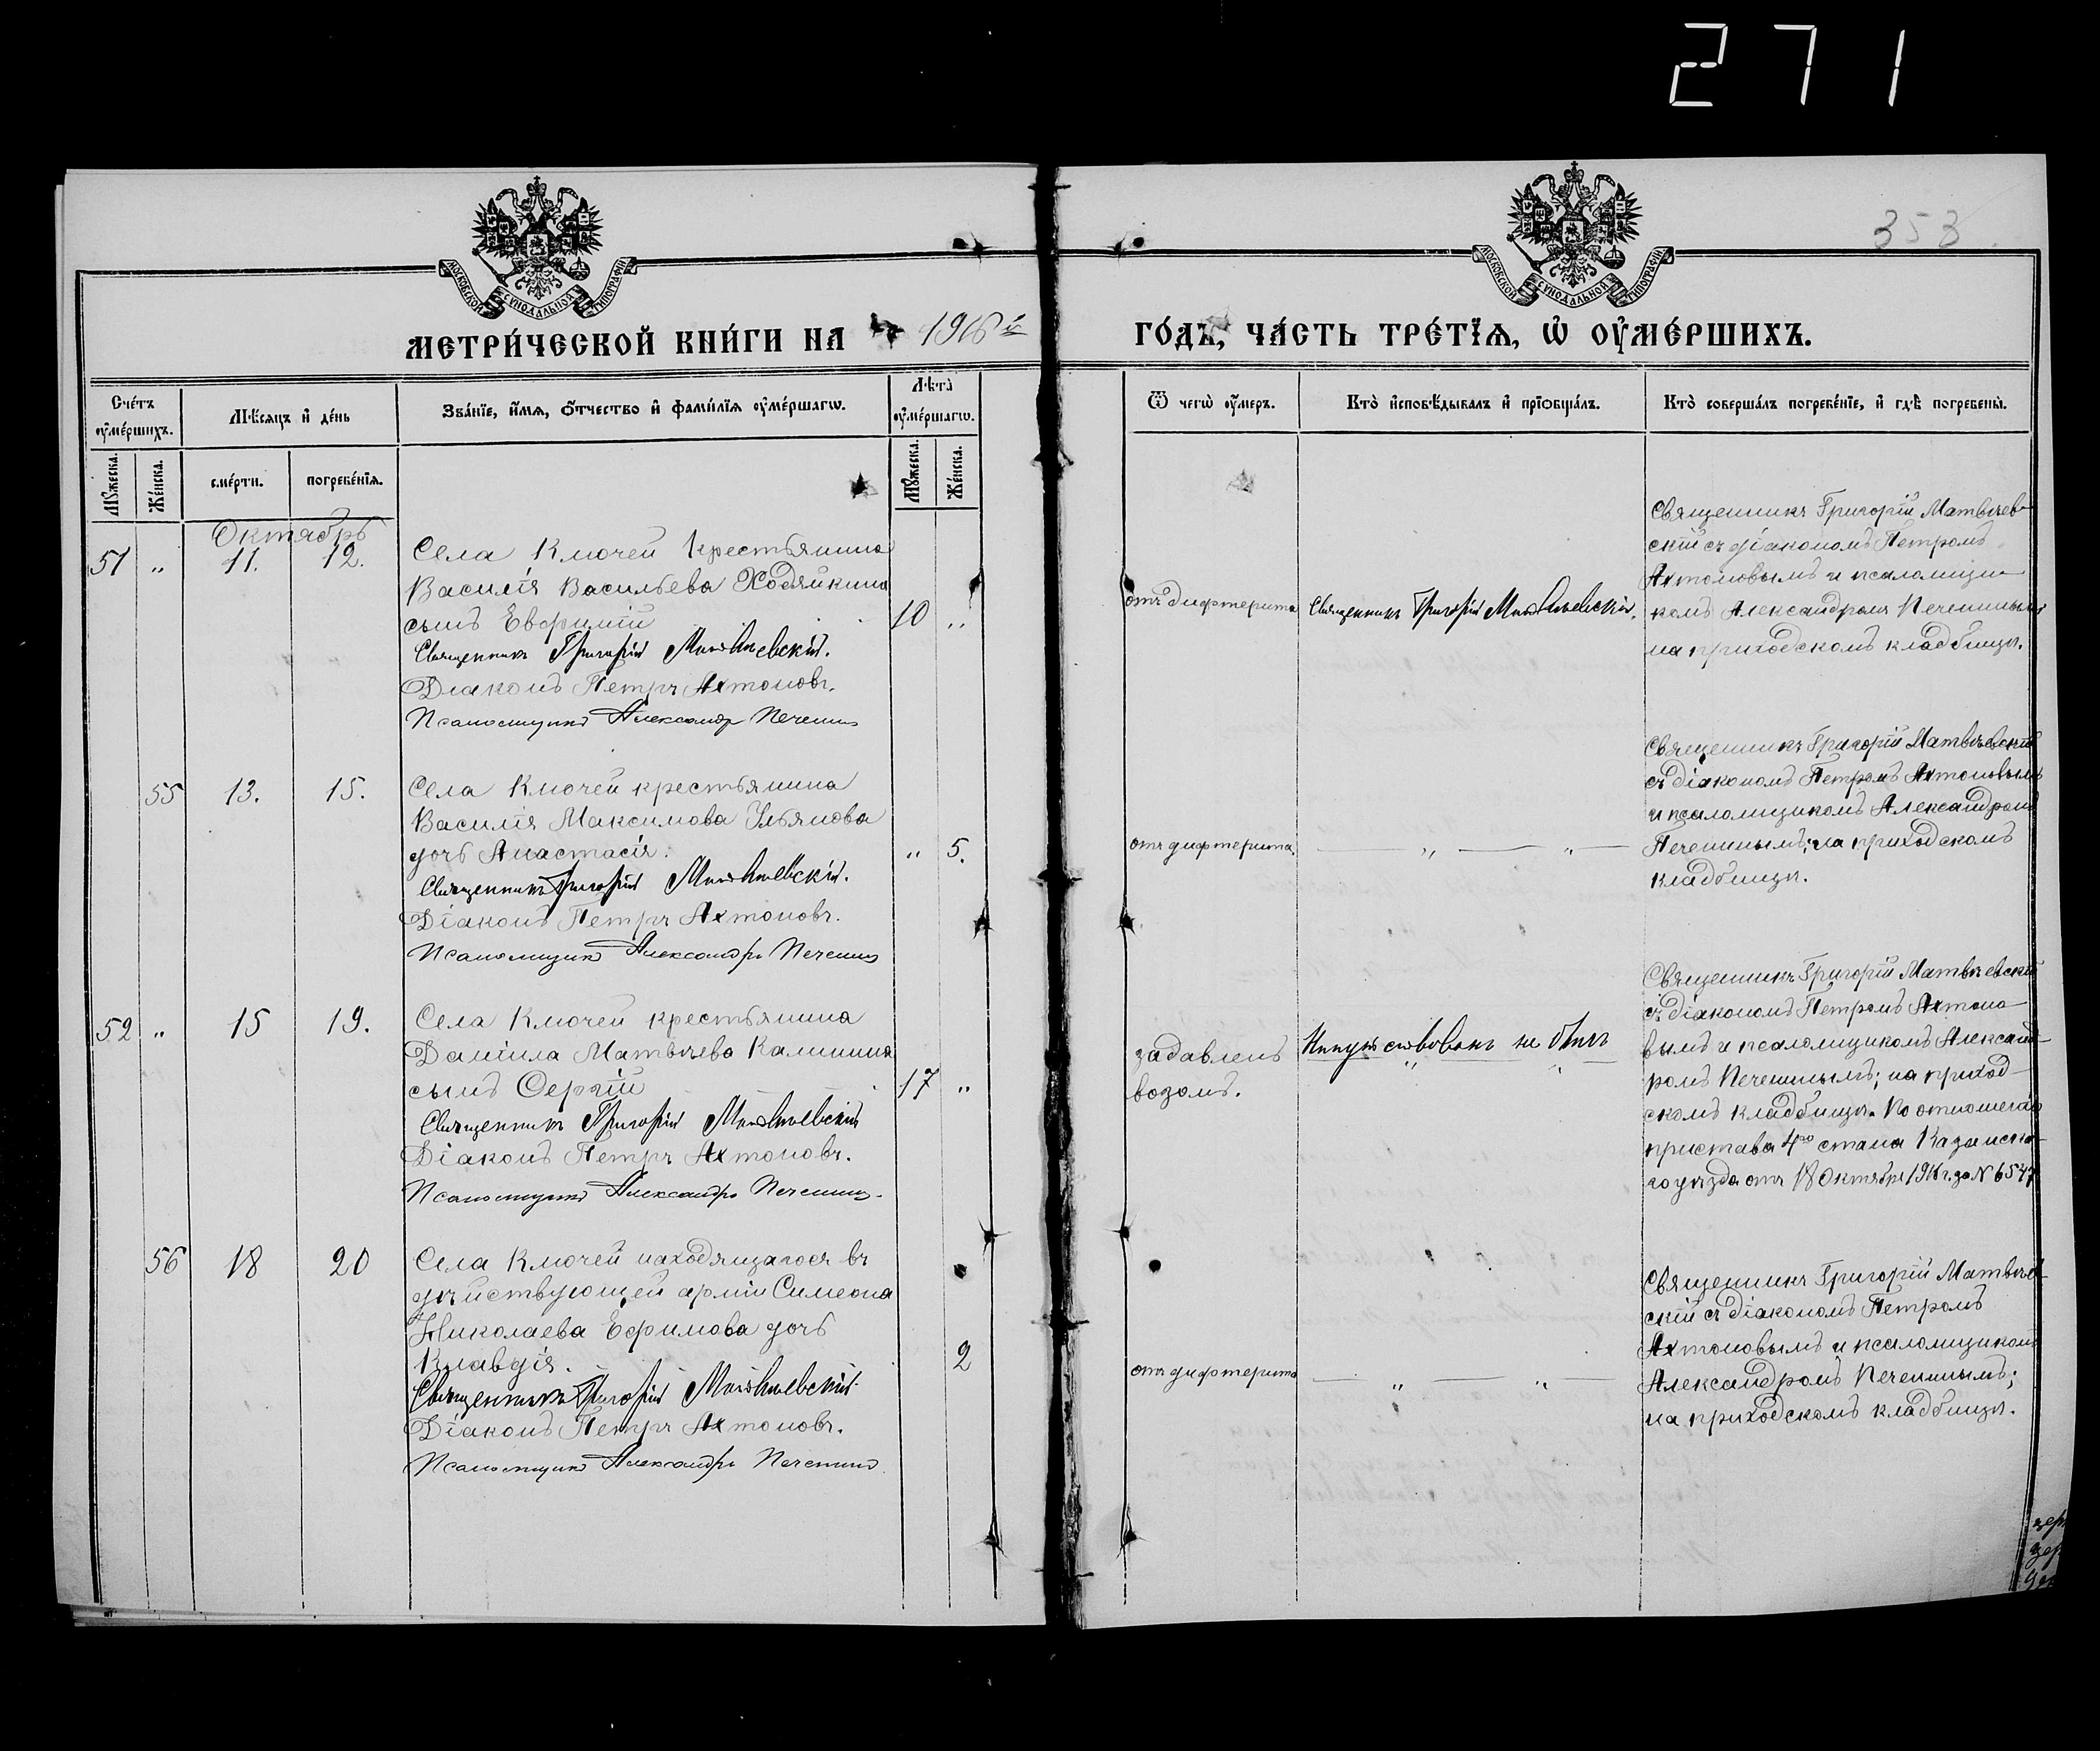 271
353
МОСКОВСКОЙ СѴНОДАЛЬНОЙ ТИПОГРАФІИ
МОСКОВСКОЙ СѴНОДАЛЬНОЙ ТИПОГРАФІИ
МЕТРИ́ЧЕСКОЙ КНИ́ГИ НА 1916й ГО́ДЪ, ЧА́СТЬ ТРЕ́ТІѦ, Ѡ҆ ОУ҆МЕ́РШИХЪ.
Сче́тъ оу҆ме́ршихъ.
Мꙋжеска.
Же́нска.
Мѣ́сѧцъ и҆ де́нь
сме́рти.
погребе́нїѧ.
Зва́нїе, и҆́мѧ, ѻ҆́тчество и҆ фамилїѧ оу҆ме́ршагѡ.
Лѣ́та оу҆ме́ршагѡ.
Мꙋжеска.
Же́нска.
Ѿ чегѡ̀ оу҆́меръ.
Кто̀ и҆сповѣ́дывалъ и҆ прїѡбща́лъ.
Кто̀ соверша́лъ погребе́нїе, и҆ гдѣ̀ погребены̀.
Октябрь
51 „ 11. 12.
Села Ключей крестьянина
Василія Васильева Ходяйкина
сынъ Евфимій 10 „
Священникъ Григорій Матвѣевскій.
Діаконъ Петръ Ахтоновъ.
Псаломщикъ Александръ Печенинъ
отъ дифтерита
Священникъ Григорій Матвѣевскій.
Священникъ Григорій Матвѣев-
скій съ діакономъ Петромъ
Ахтоновымъ и псаломщи-
комъ Александромъ Печенинымъ
на приходскомъ кладбищѣ.
55 13. 15.
Села Ключей крестьянина
Василія Максимова Ульянова
дочь Анастасія. „ 5.
Священникъ Григорій Матвѣевскій.
Діаконъ Петръ Ахтоновъ.
Псаломщикъ Александръ Печенинъ
отъ дифтерита.
— „ — „ —
Священникъ Григорій Матвѣевскій
съ діакономъ Петромъ Ахтоновымъ
и псаломщикомъ Александромъ
Печенинымъ; на приходскомъ
кладбищѣ.
52 „ 15 19.
Села Ключей крестьянина
Даніила Матвѣева Калинина
сынъ Сергій 17 „
Священникъ Григорій Матвѣевскій
Діаконъ Петръ Ахтоновъ.
Псаломщикъ Александръ Печенинъ.
задавленъ
возомъ.
Напутствованъ не былъ
Священникъ Григорій Матвѣевскій
съ діакономъ Петромъ Ахтоно-
вымъ и псаломщикомъ Александ-
ромъ Печенинымъ; на приход-
скомъ кладбищѣ. По отношенію
пристава 4го стана Казанска-
го уѣзда отъ 18 Октября 1916 г. за № 6547
56 18 20
Села Ключей находящагося въ
дѣйствующей арміи Симеона
Николаева Ефимова дочь
Клавдія. 2
Священникъ Григорій Матвѣевскій.
Діаконъ Петръ Ахтоновъ.
Псаломщикъ Александръ Печенинъ
отъ дифтерита
— „ — „ —
Священникъ Григорій Матвѣев-
скій съ діакономъ Петромъ
Ахтоновымъ и псаломщикомъ
Александромъ Печенинымъ;
на приходскомъ кладбищѣ.